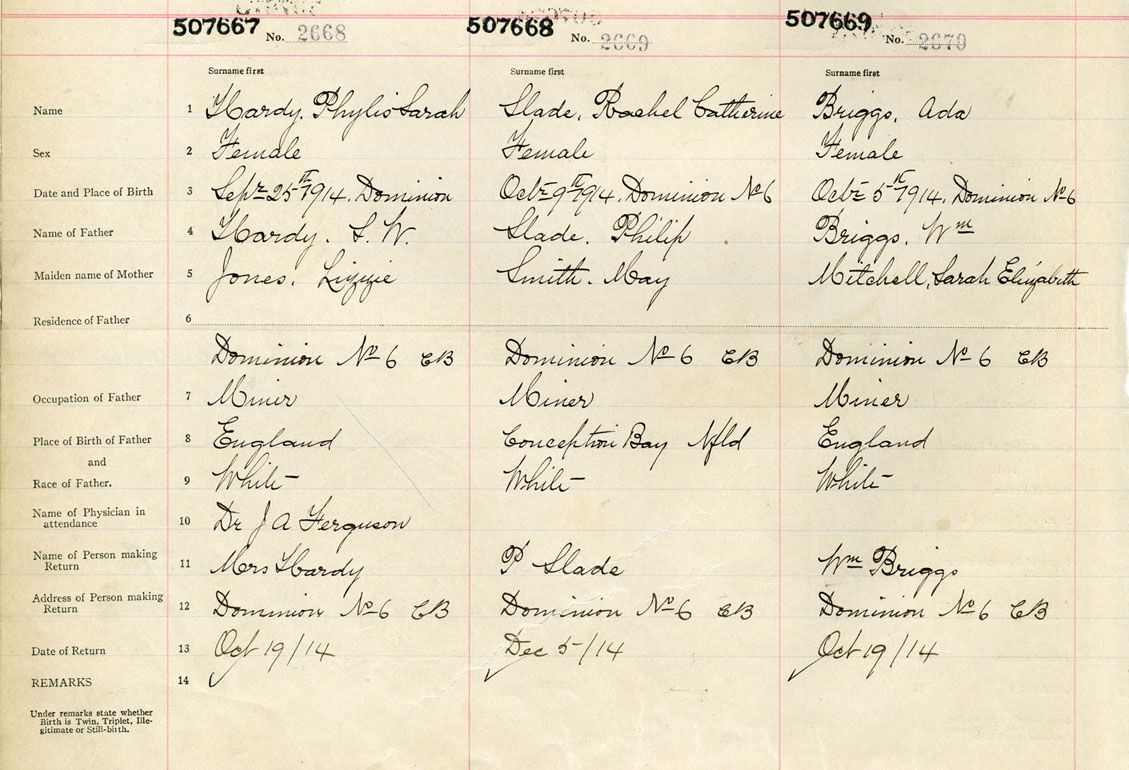 507667 No. 2668 507668 No. 2669 507669 No. 2670
Surname first Surname first Surname first
Name 1 Hardy, Phylis Sarah Slade, Rachel Catherine Briggs, Ada
Sex 2 Female Female Female
Date and Place of Birth 3 Sepr 25th 1914. Dominion Octr 9th 1914. Dominion No 6 Octr 5th 1914. Dominion No 6
Name of Father 4 Hardy. S. W. Slade. Philip Briggs. Wm
Maiden name of Mother 5 Jones. Lizzie Smith. May Mitchell, Sarah Elizabeth
Residence of Father 6
Dominion No 6 CB Dominion No 6 CB Dominion No 6 CB
Occupation of Father 7 Miner Miner Miner
Place of Birth of Father 8 England Conception Bay Nfld England
and
Race of Father. 9 White White White
Name of Physician in
attendance 10 Dr J A Ferguson
Name of Person making
Return 11 Mrs Hardy P Slade Wm Briggs
Address of Person making
Return 12 Dominion No 6 CB Dominion No 6 CB Dominion No 6 CB
Date of Return 13 Oct 19/14 Dec 5/14 Oct 19/14
REMARKS 14
Under remarks state whether
Birth is Twin, Triplet, Ille-
gitimate or Still-birth.